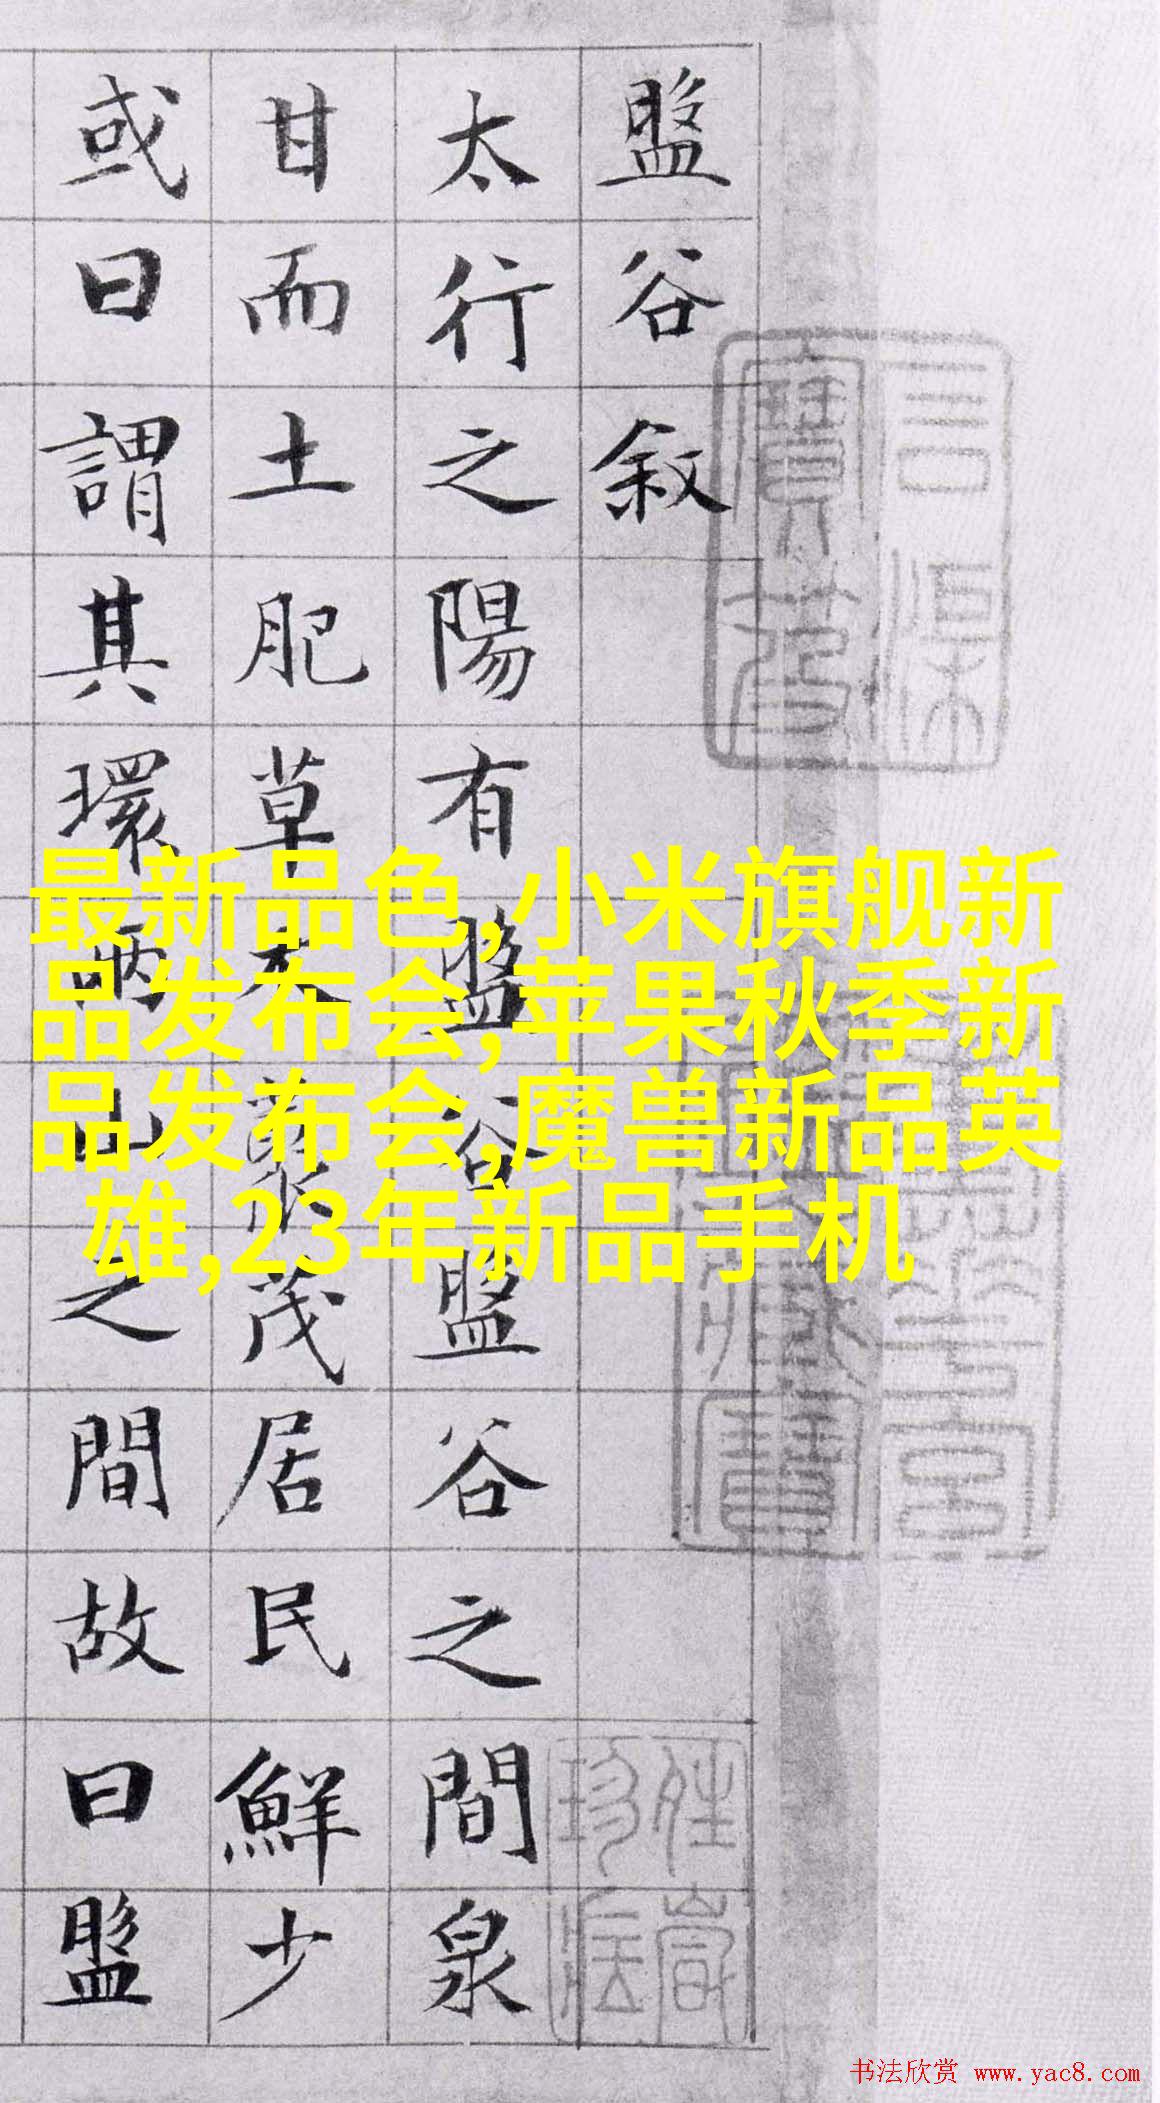 盤谷敘
太行之陽有盤谷盤谷之間泉
甘而土肥草木叢茂居民鮮少
或曰謂其環兩山之間故曰盤
最新品色,小米旗舰新
品发布会,苹果秋季新
品发布会,魔兽新品英
雄,23年新品手机
书法欣赏 www.yac8.com